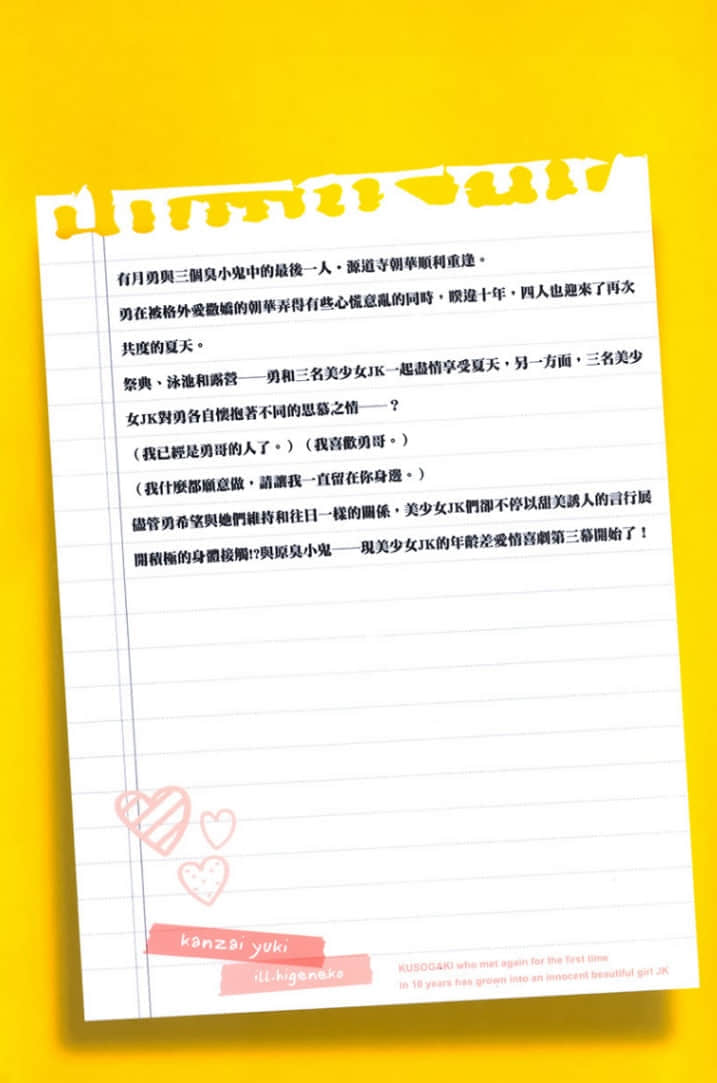 有月勇與三個臭小鬼中的最後一人・源道寺朝華順利重逢。
勇在被格外愛撒嬌的朝華弄得有些心慌意亂的同時，睽違十年，四人也迎來了再次
共度的夏天。
祭典、泳池和露營——勇和三名美少女JK一起盡情享受夏天，另一方面，三名美少
女JK對勇各自懷抱著不同的思慕之情——？
（我已經是勇哥的人了。）（我喜歡勇哥。）
（我什麼都願意做，請讓我一直留在你身邊。）
儘管勇希望與她們維持和往日一樣的關係，美少女JK們卻不停以甜美誘人的言行展
開積極的身體接觸!?與原臭小鬼——現美少女JK的年齡差愛情喜劇第三幕開始了！
kanzai yuki
ill.higeneko
KUSOGAKI who met again for the first time
in 10 years has grown into an innocent beautiful girl JK